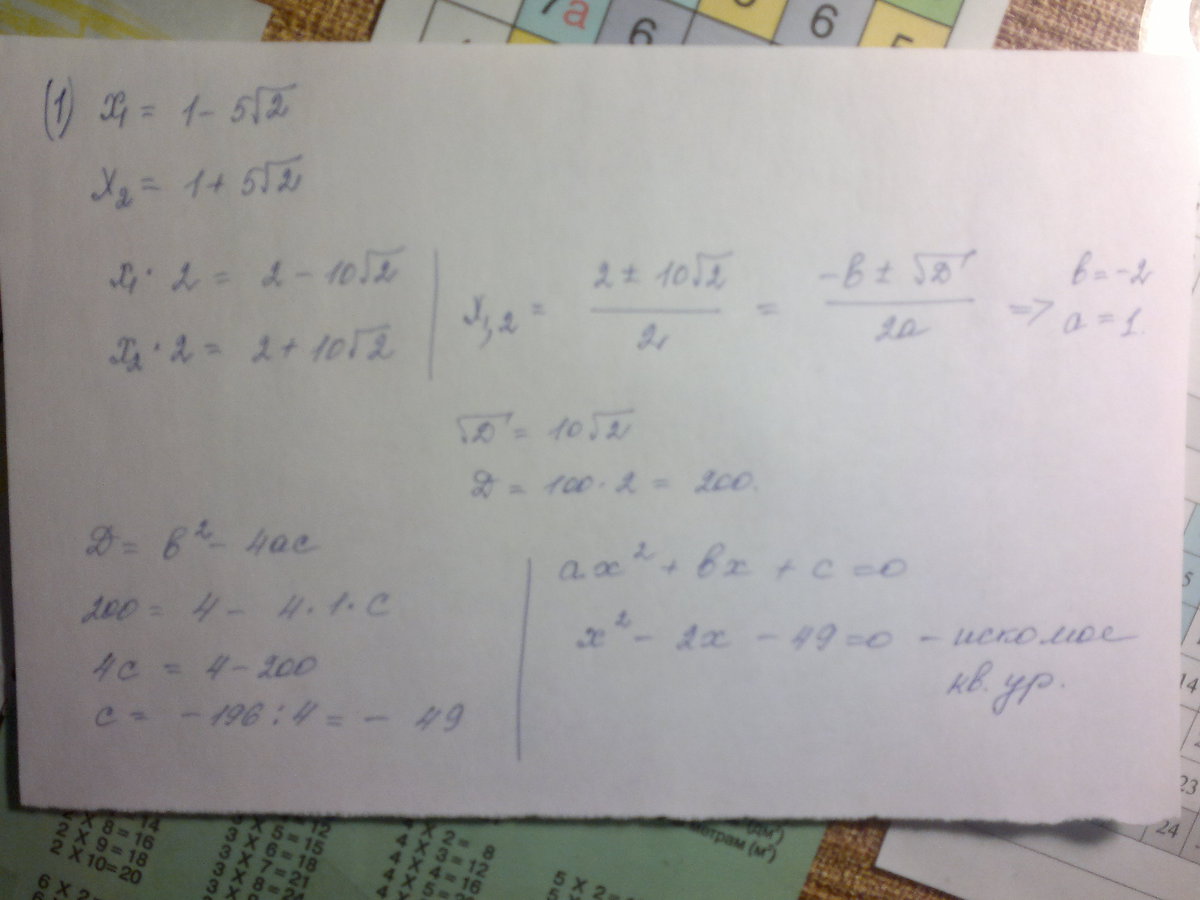 7a 6 6 5
(1) x₁ = 1 - 5√2
x₂ = 1 + 5√2
x₁ · 2 = 2 - 10√2
x₂ · 2 = 2 + 10√2
x₁,₂ = (2 ± 10√2)/2 = (-в ± √D)/2a => в = -2
a = 1.
√D = 10√2
D = 100 · 2 = 200.
D = в² - 4ac
200 = 4 - 4 · 1 · c
4c = 4 - 200
c = -196 : 4 = - 49
ax² + вx + c = 0
x² - 2x - 49 = 0 - искомое
кв. ур.
5
14
23
24
2 X 8 = 16
2 X 9 = 18
2 X 10=20
6 X 2=
3 X 5 = 15
3 X 6 = 18
3 X 7 = 21
3 X 8 = 24
4 X 2 = 8
4 X 3 = 12
4 X 4 = 16
5 X 2=
(дм³)
метрам (м³)